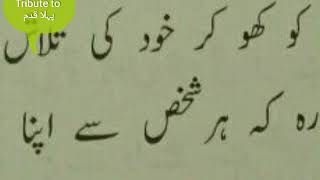 Tribute to
پہلا قدم
کو کھو کر خود کی تلاش
رہ کہ ہر شخص سے اپنا